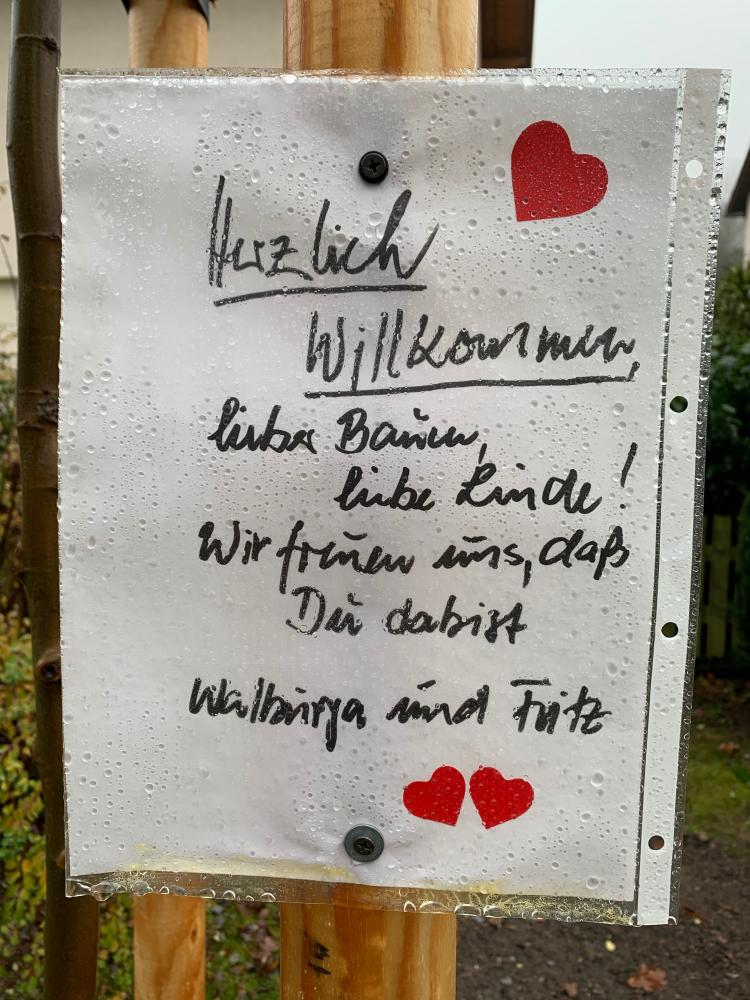 Herzlich
Willkommen,
lieber Baum,
liebe Linde!
Wir freuen uns, daß
Du dabist
Walburga und Fritz